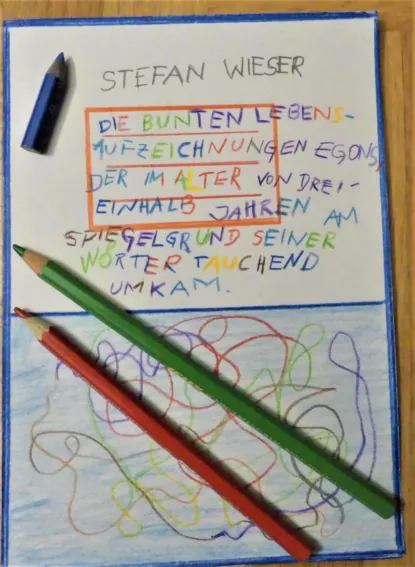 STEFAN WIESER
DIE BUNTEN LEBENS-
AUFZEICHNUNGEN EGONS,
DER IM ALTER VON DREI-
EINHALB JAHREN AM
SPIEGELGRUND SEINER
WÖRTER TAUCHEND
UMKAM.